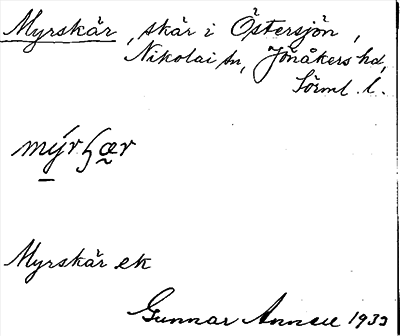 Myrskär, skär i Östersjön,
Nikolai sn, Jönåkers hd,
Sörml. l.
Myrskär ek
Gunnar 1933